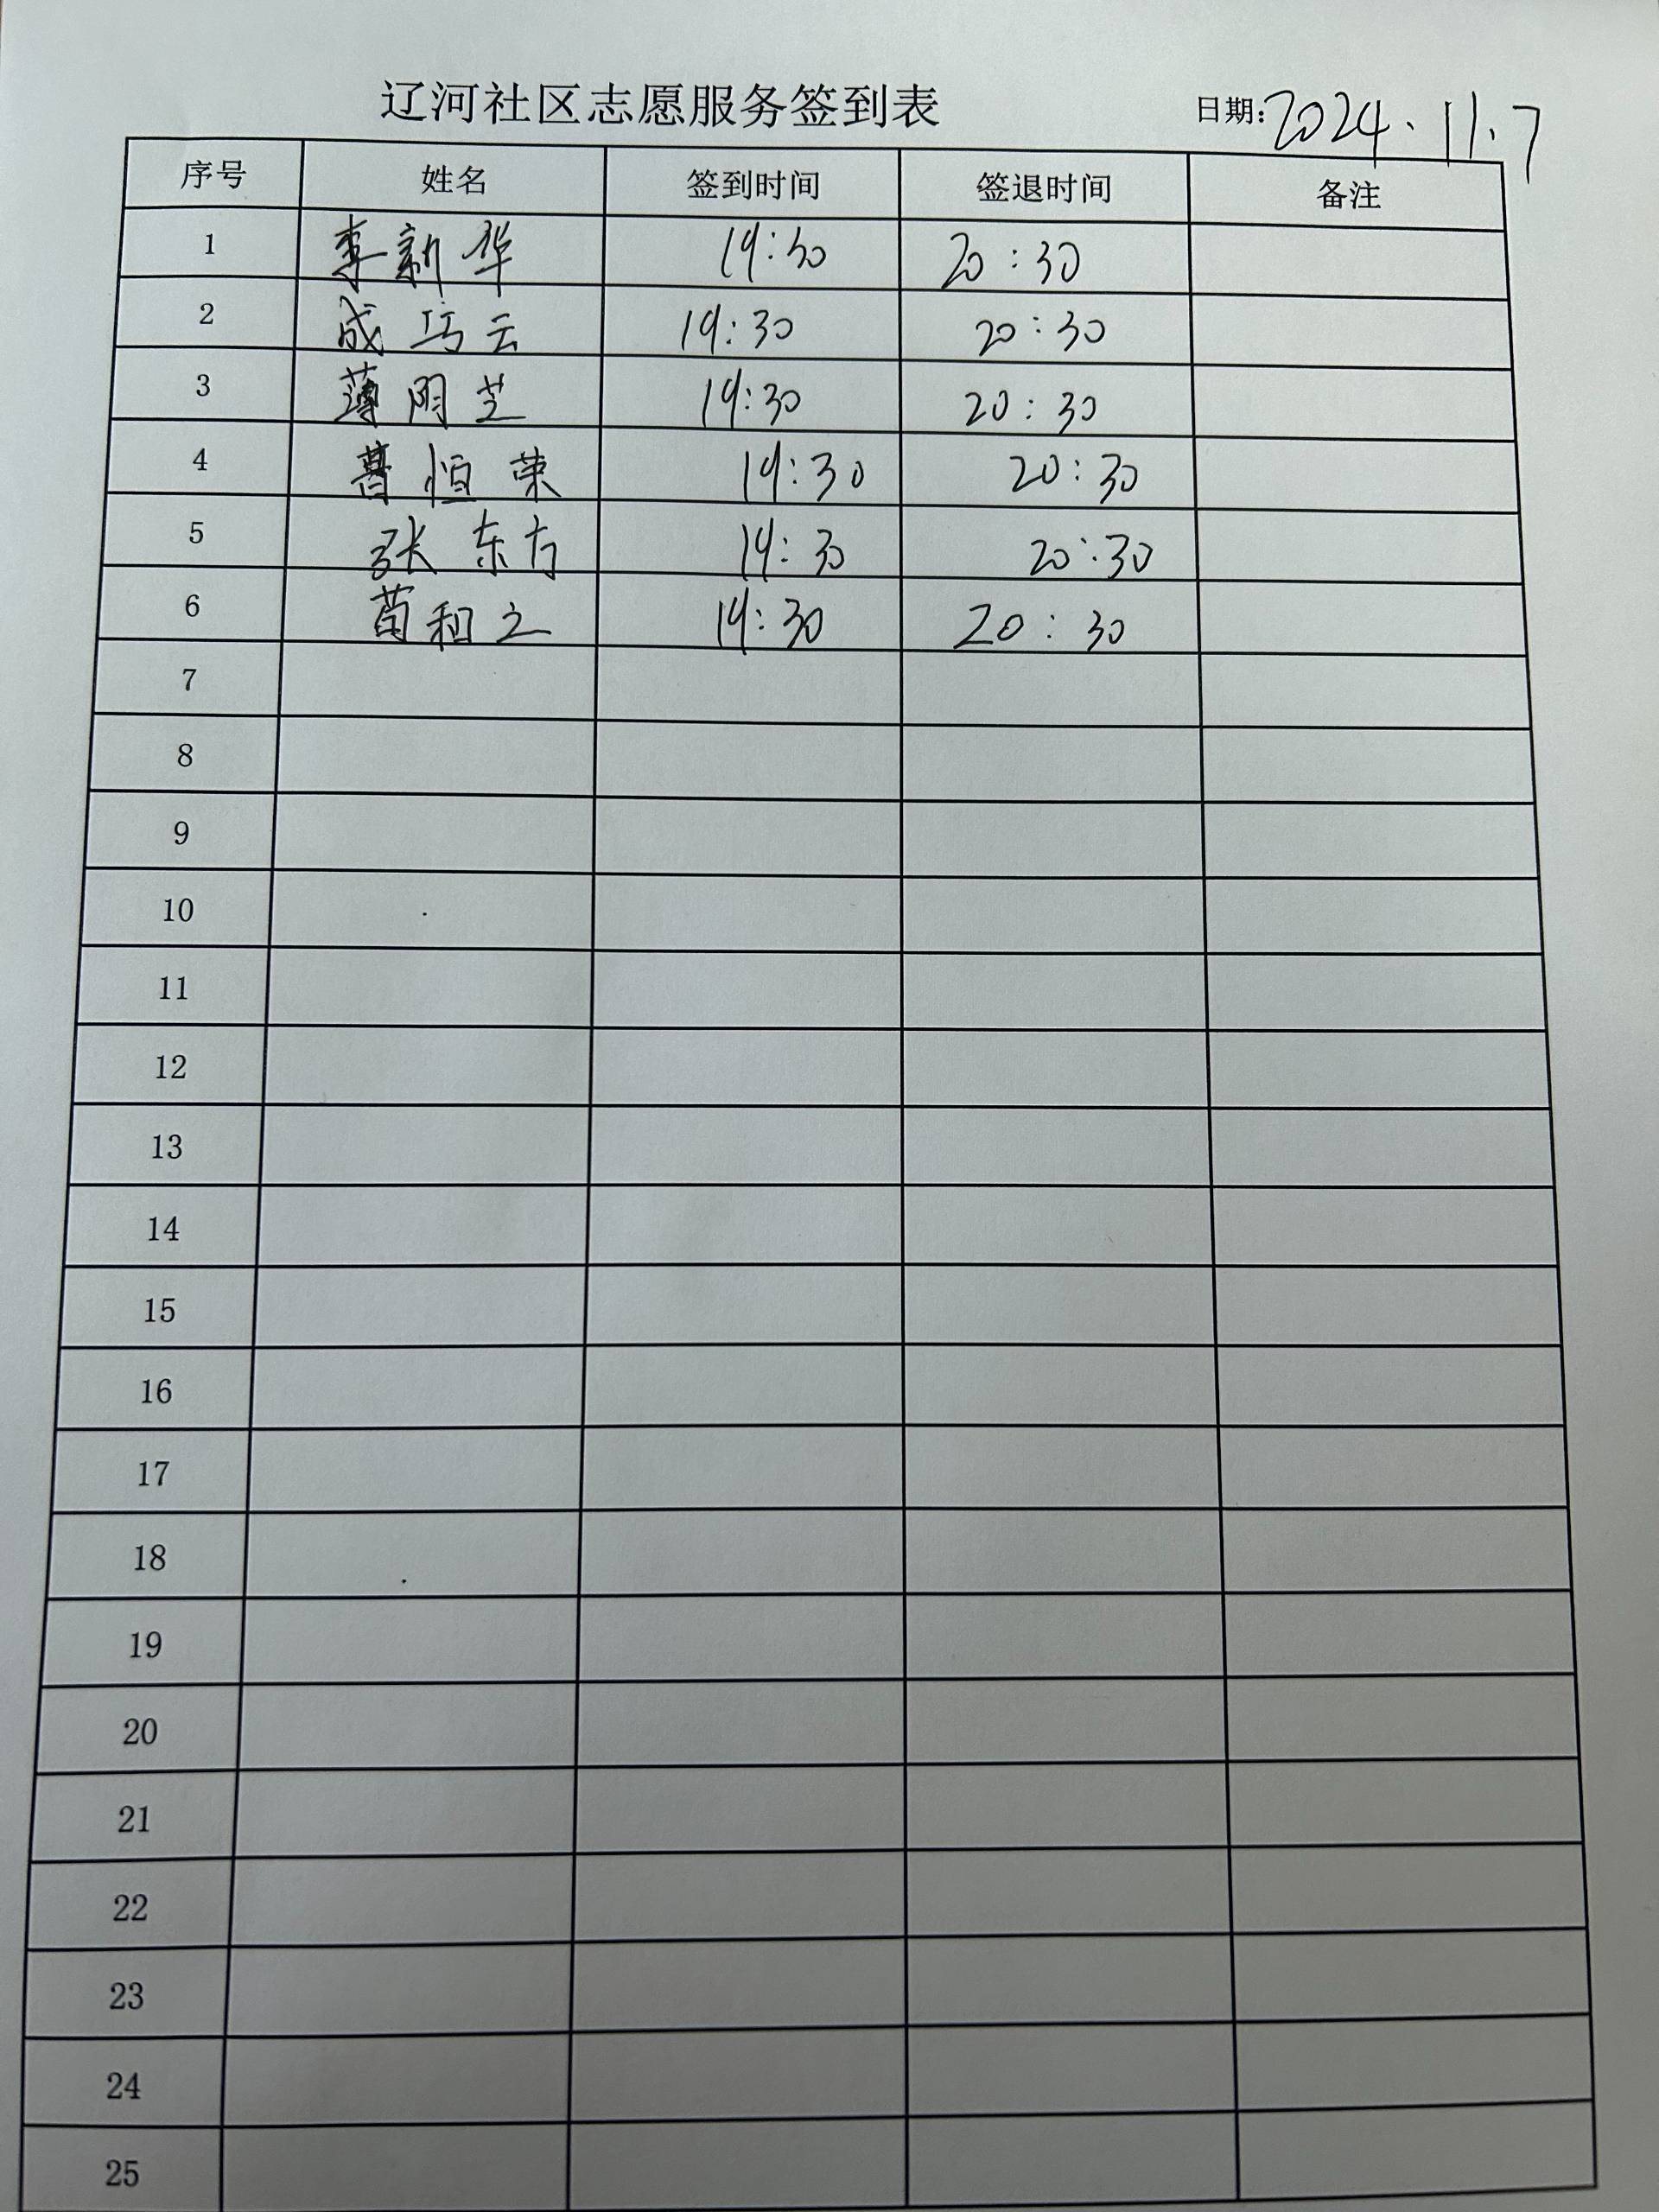 辽河社区志愿服务签到表 日期: 2024.11.7
序号 姓名 签到时间 签退时间 备注
1 李新华 19:30 20:30
2 成巧云 19:30 20:30
3 薄阴芝 19:30 20:30
4 恒荣 19:30 20:30
5 张东方 19:30 20:30
6 苟和之 19:30 20:30
7
8
9
10
11
12
13
14
15
16
17
18
19
20
21
22
23
24
25